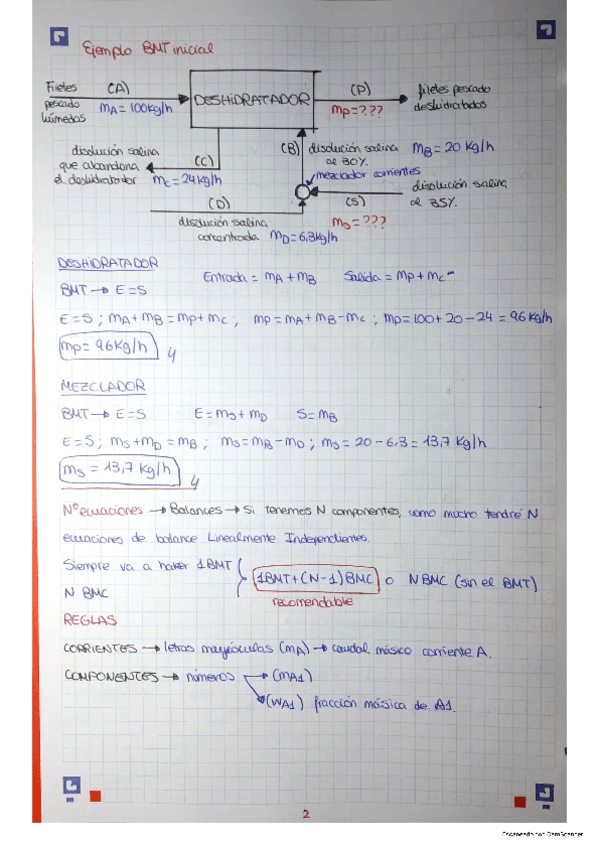 Ejemplo BMT inicial
Filetes pescado húmedos
(A)
mA = 100kg/h
DESHIDRATADOR
(P)
mp=???
filetes pescado deshidratados
disolución salina que abandona el deshidratador
(C)
mC = 24kg/h
(B)
disolución salina al 30%.
mB = 20 Kg/h
mezclador corrientes
(D)
disolución salina concentrada
mD = 6,3kg/h
(S)
mS = ???
disolución salina al 35%.
DESHIDRATADOR
Entrada = mA + mB Salida = mp + mC
BMT → E = S
E = S ; mA + mB = mp + mC ; mp = mA + mB - mC ; mp = 100 + 20 - 24 = 96 kg/h
mp = 96 Kg/h
MEZCLADOR
BMT → E = S E = mS + mD S = mB
E = S ; mS + mD = mB ; mS = mB - mD ; mS = 20 - 6,3 = 13,7 Kg/h
mS = 13,7 Kg/h
Nº ecuaciones → Balances → Si tenemos N componentes, como mucho tendré N
ecuaciones de balance Linealmente Independientes.
Siempre va a haber 1BMT
N BMC
1BMT + (N-1) BMC o N BMC (sin el BMT)
recomendable
REGLAS
CORRIENTES → letras mayúsculas (mA) → caudal másico corriente A.
COMPONENTES → números → (mA1)
(WA1) fracción másica de A1.
2
Escaneado con CamScanner